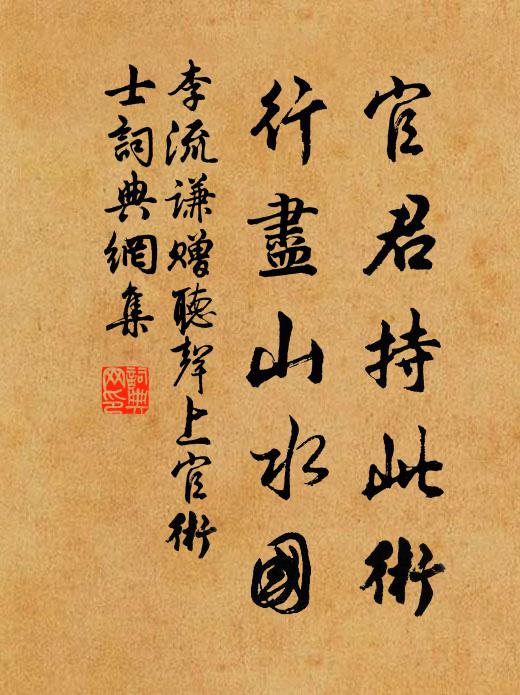 官君持此術
行盡山水國
李流謙贈聽聲上官術
士詞典網集
詞典
网印